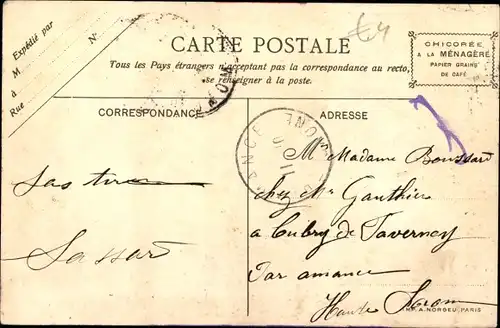 Expédié par
M
à
Rue
N°
CARTE POSTALE
Tous les Pays étrangers n'acceptant pas la correspondance au recto,
se renseigner à la poste.
CHICORÉE
A LA MÉNAGÈRE
PAPIER GRAINS
DE CAFÉ
CORRESPONDANCE
ADRESSE
Madame Boussard
chez Mr Gauthier
a Cubry de Faverney
Par amance
Haute Saone
A. NORGEU PARIS